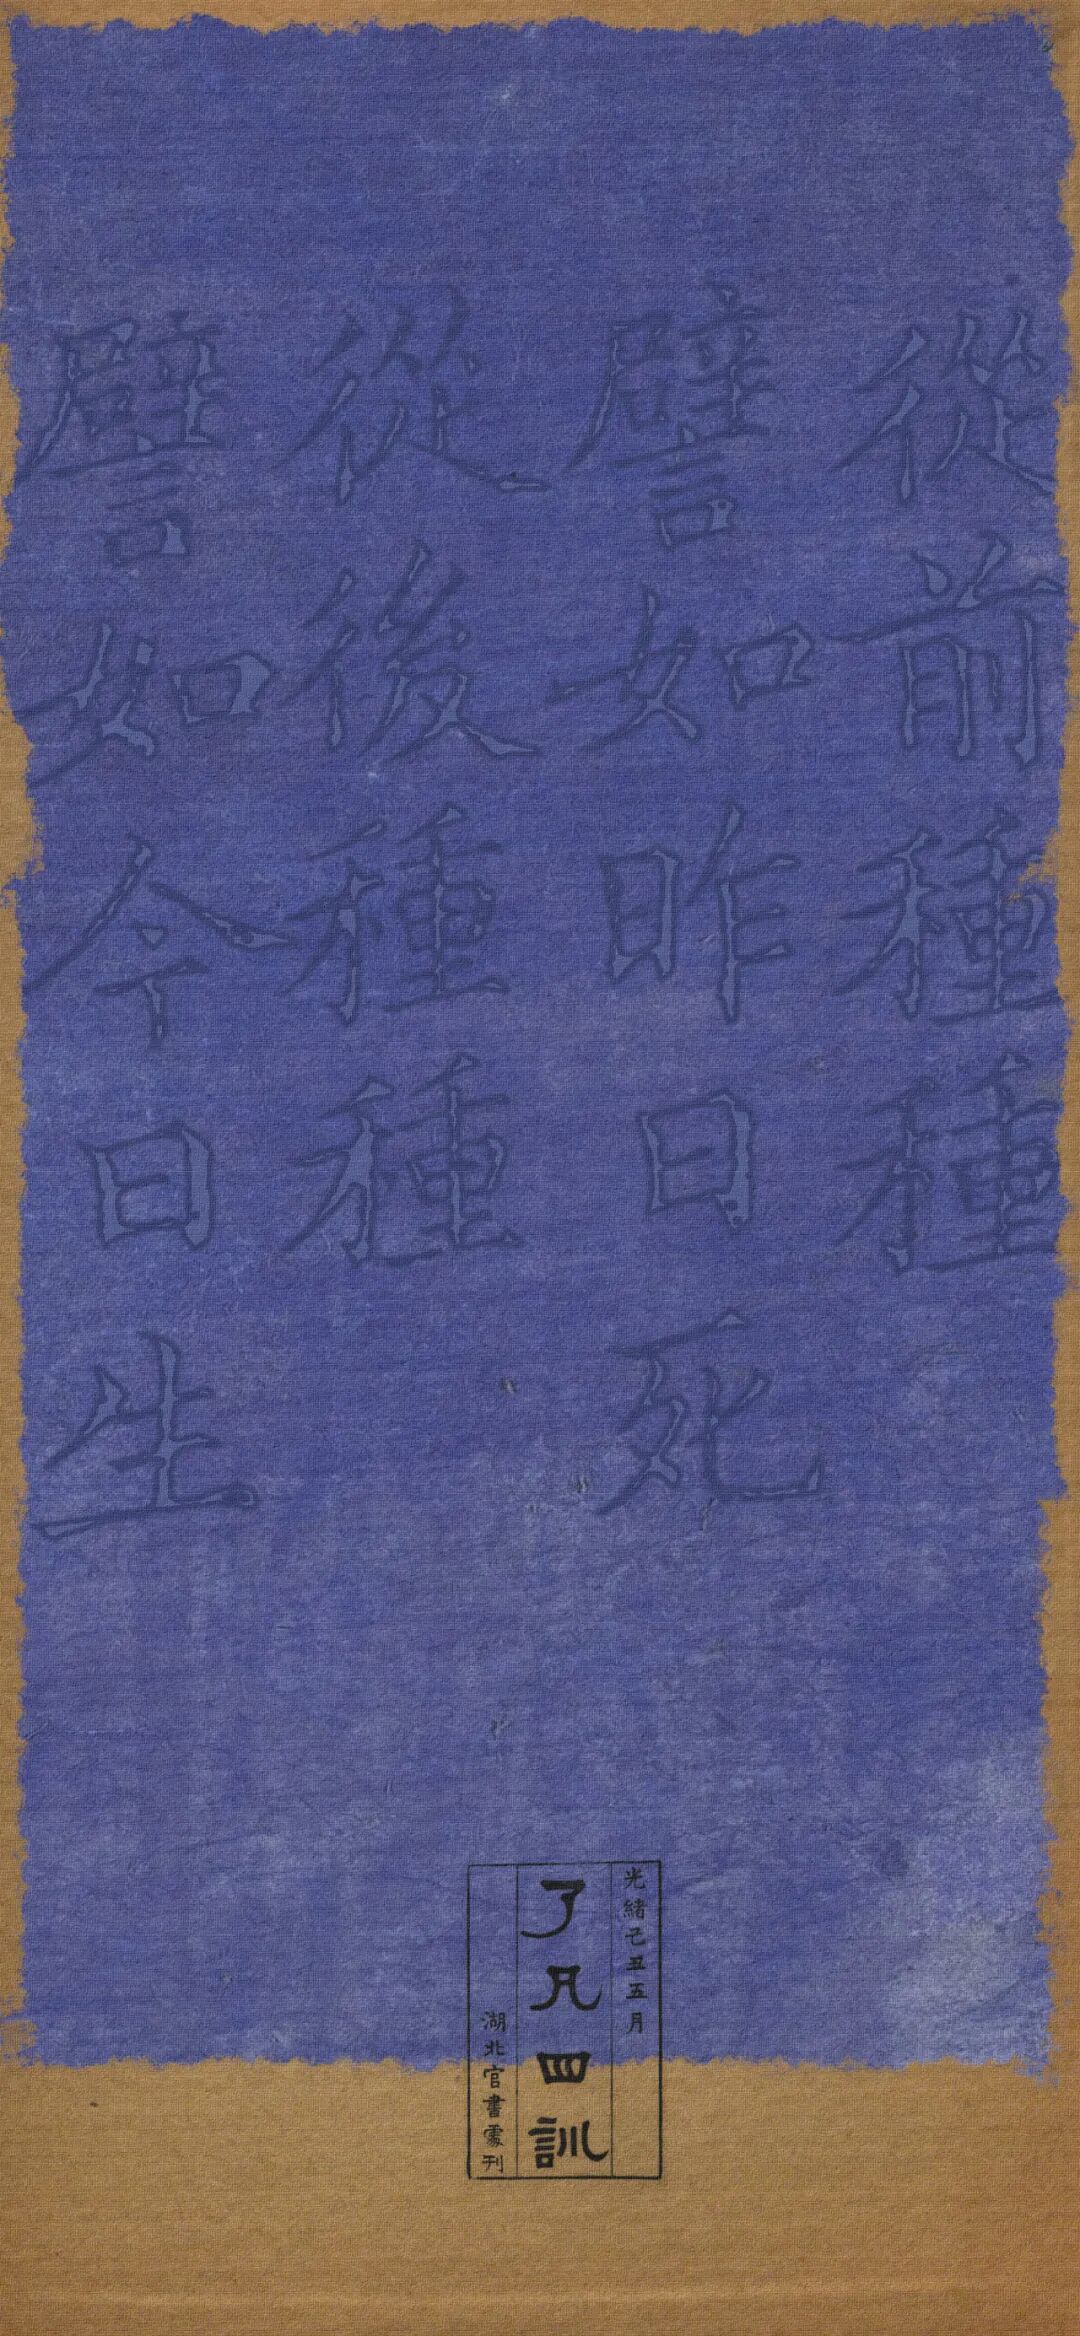 從前種種
譬如昨日死
從後種種
譬如今日生
光緒己丑五月
了凡四訓
湖北官書處刊